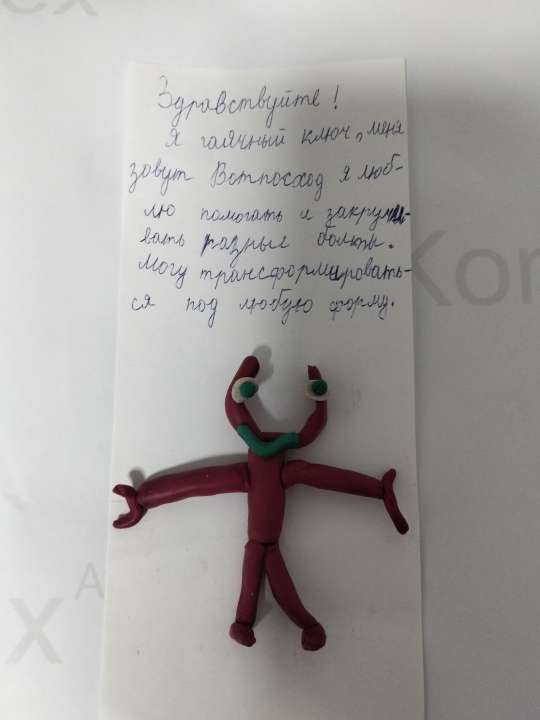 ex
Здравствуйте!
Я гаячный ключ, меня
зовут Вотпосход я люб-
лю помогать и закручи-
вать разные болты.
Могу трансформировать-
ся под любую форму.
Kon
A
x